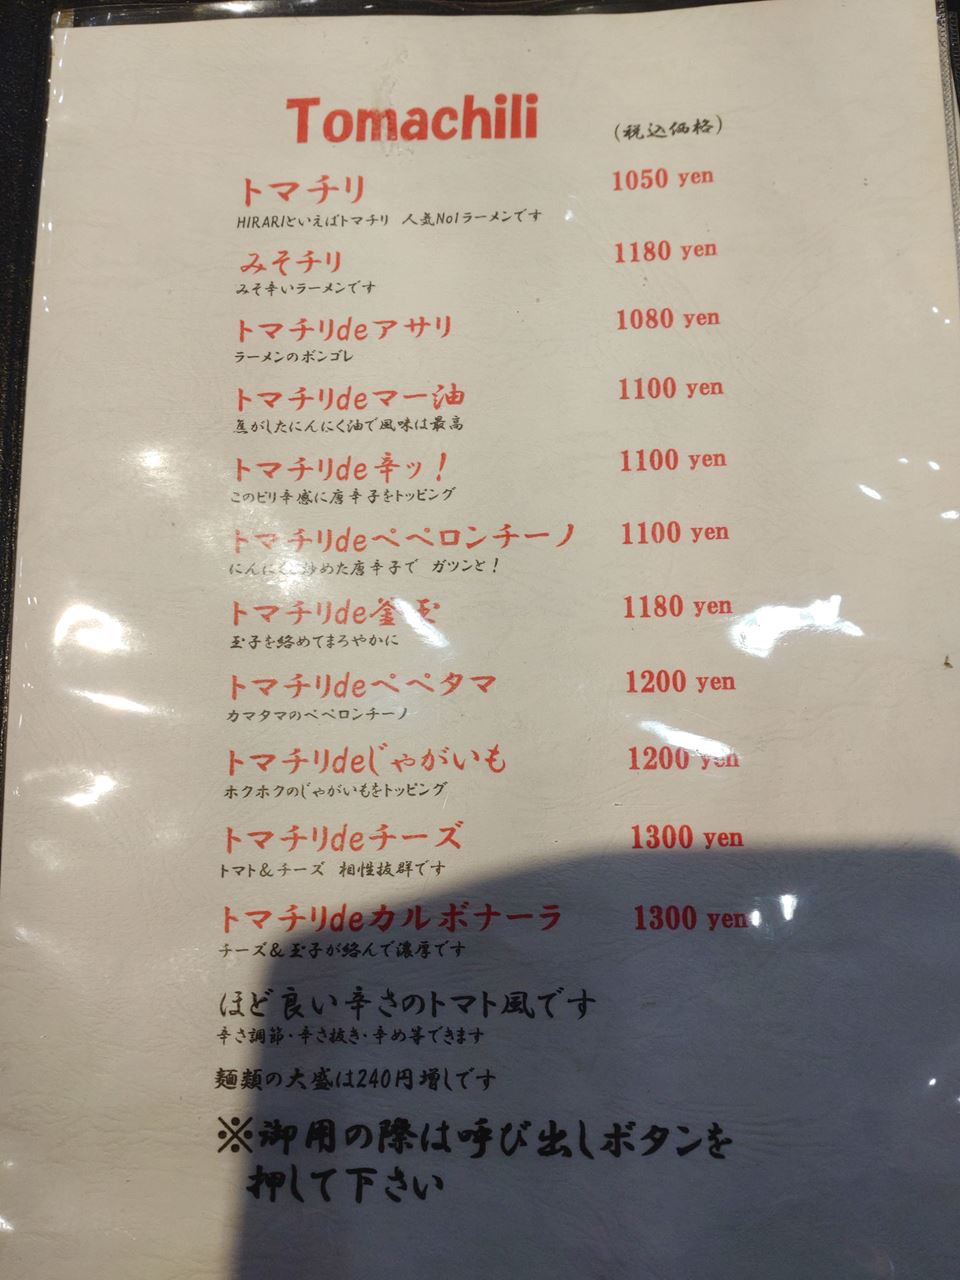 Tomachili
(税込価格)
トマチリ 1050 yen
HIRARIといえばトマチリ 人気No1ラーメンです
みそチリ 1180 yen
みそ辛いラーメンです
トマチリdeアサリ 1080 yen
ラーメンのボンゴレ
トマチリdeマー油 1100 yen
焦がしたにんにく油で風味は最高
トマチリde辛ッ! 1100 yen
このピリ辛感に唐辛子をトッピング
トマチリdeペペロンチーノ 1100 yen
にんにく 炒めた唐辛子で ガツンと!
トマチリde釜玉 1180 yen
玉子を絡めてまろやかに
トマチリdeペペタマ 1200 yen
カマタマのペペロンチーノ
トマチリdeじゃがいも 1200 yen
ホクホクのじゃがいもをトッピング
トマチリdeチーズ 1300 yen
トマト&チーズ 相性抜群です
トマチリdeカルボナーラ 1300 yen
チーズ&玉子が絡んで濃厚です
ほど良い辛さのトマト風です
辛さ調節・辛さ抜き・辛め等できます
麺類の大盛は240円増しです
※御用の際は呼び出しボタンを
押して下さい